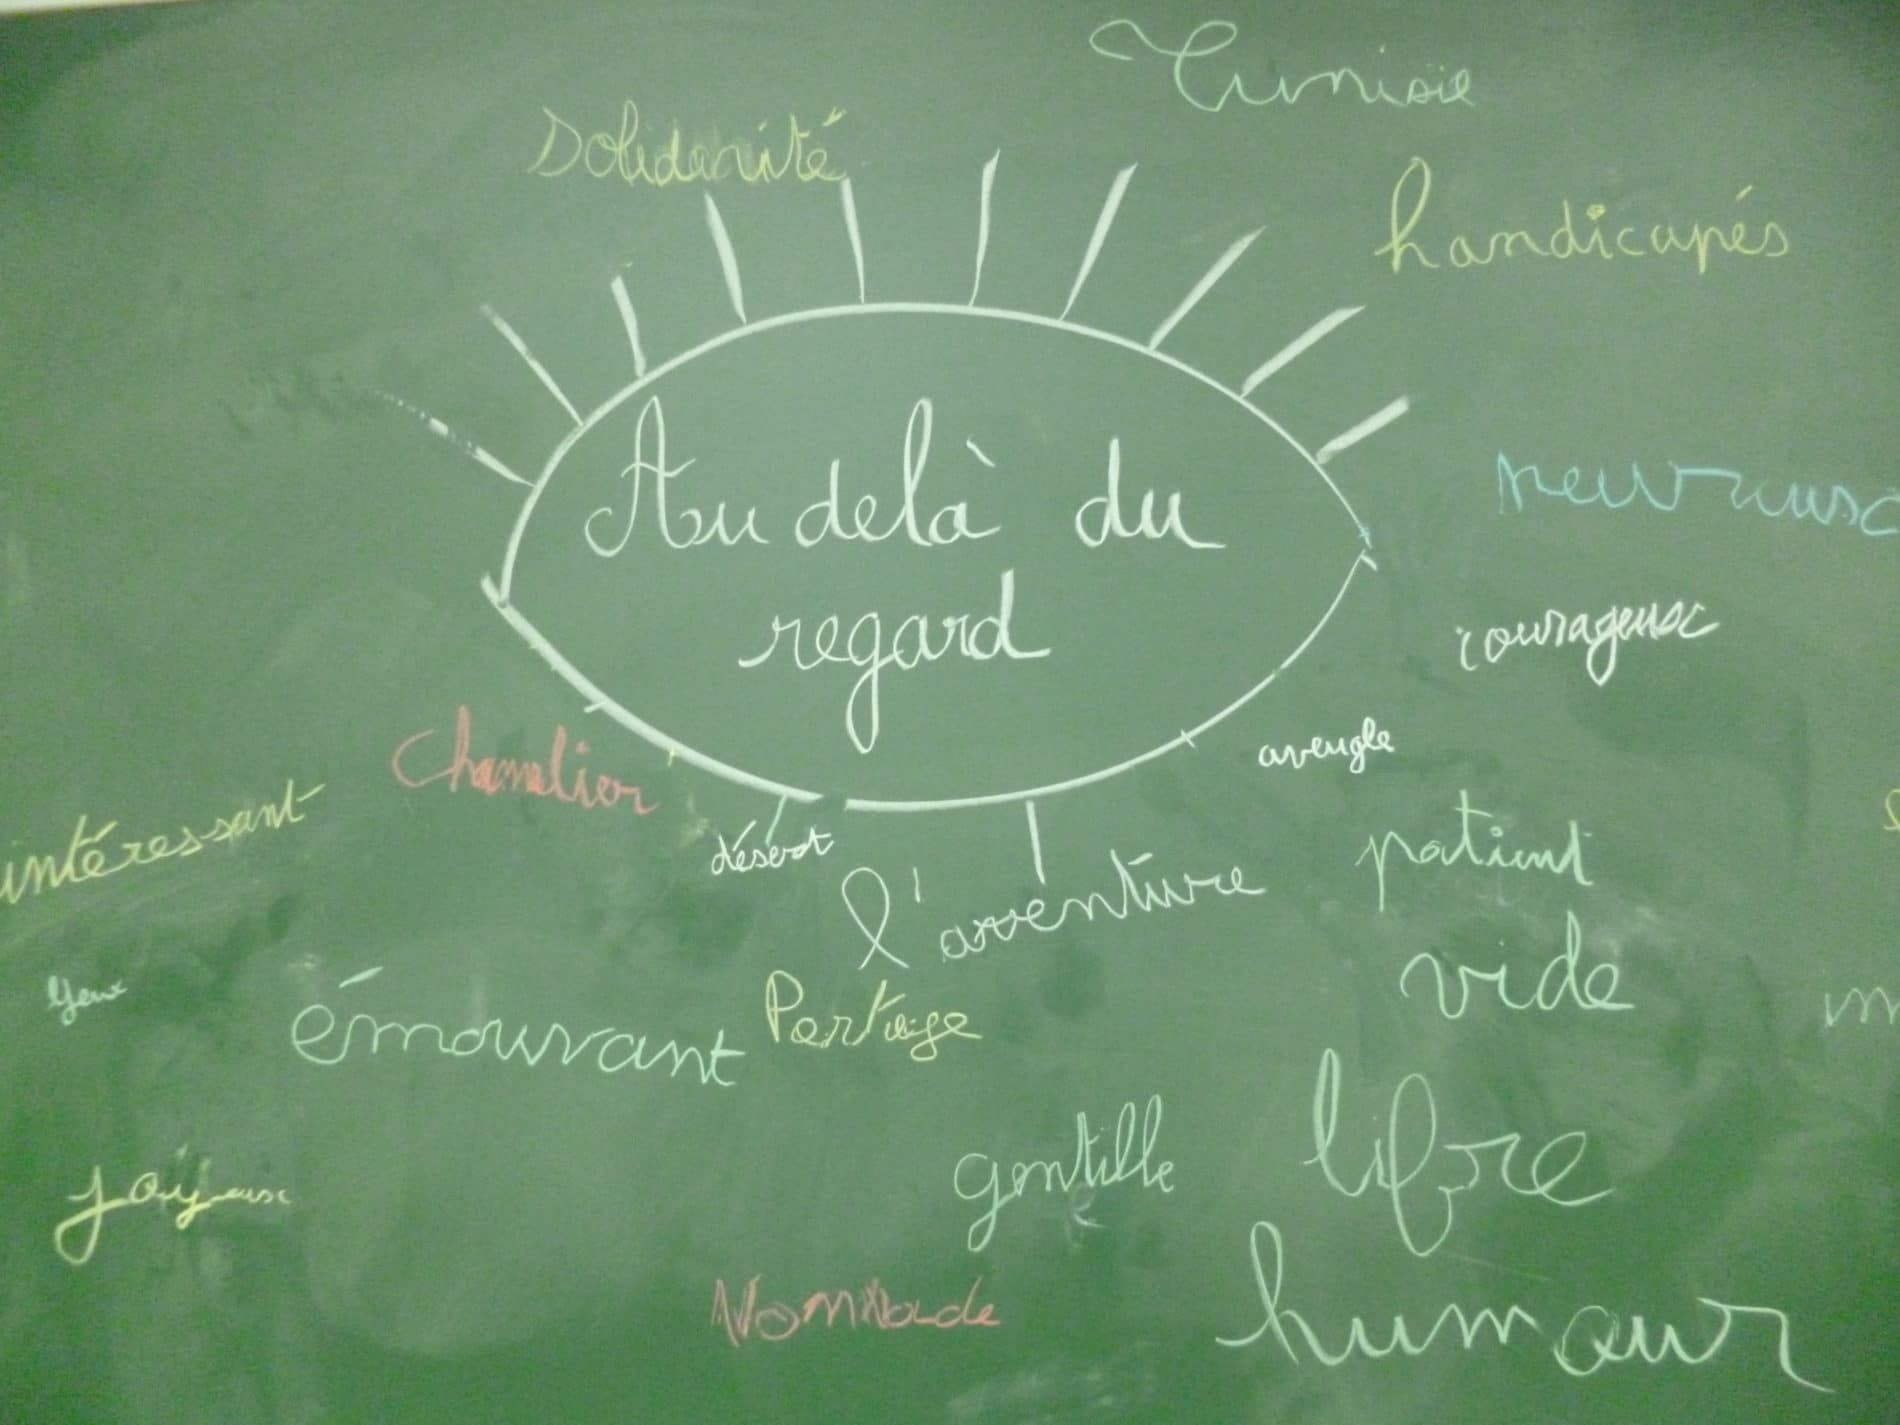 Tunisie
solidarité
handicapés
Au delà du
regard
courageuse
aveugle
Chamelier
intéressant
désert
l'aventure
patient
vide
yeux
émouvant
Partage
gentille
libre
joiyeuse
Nomade
humour